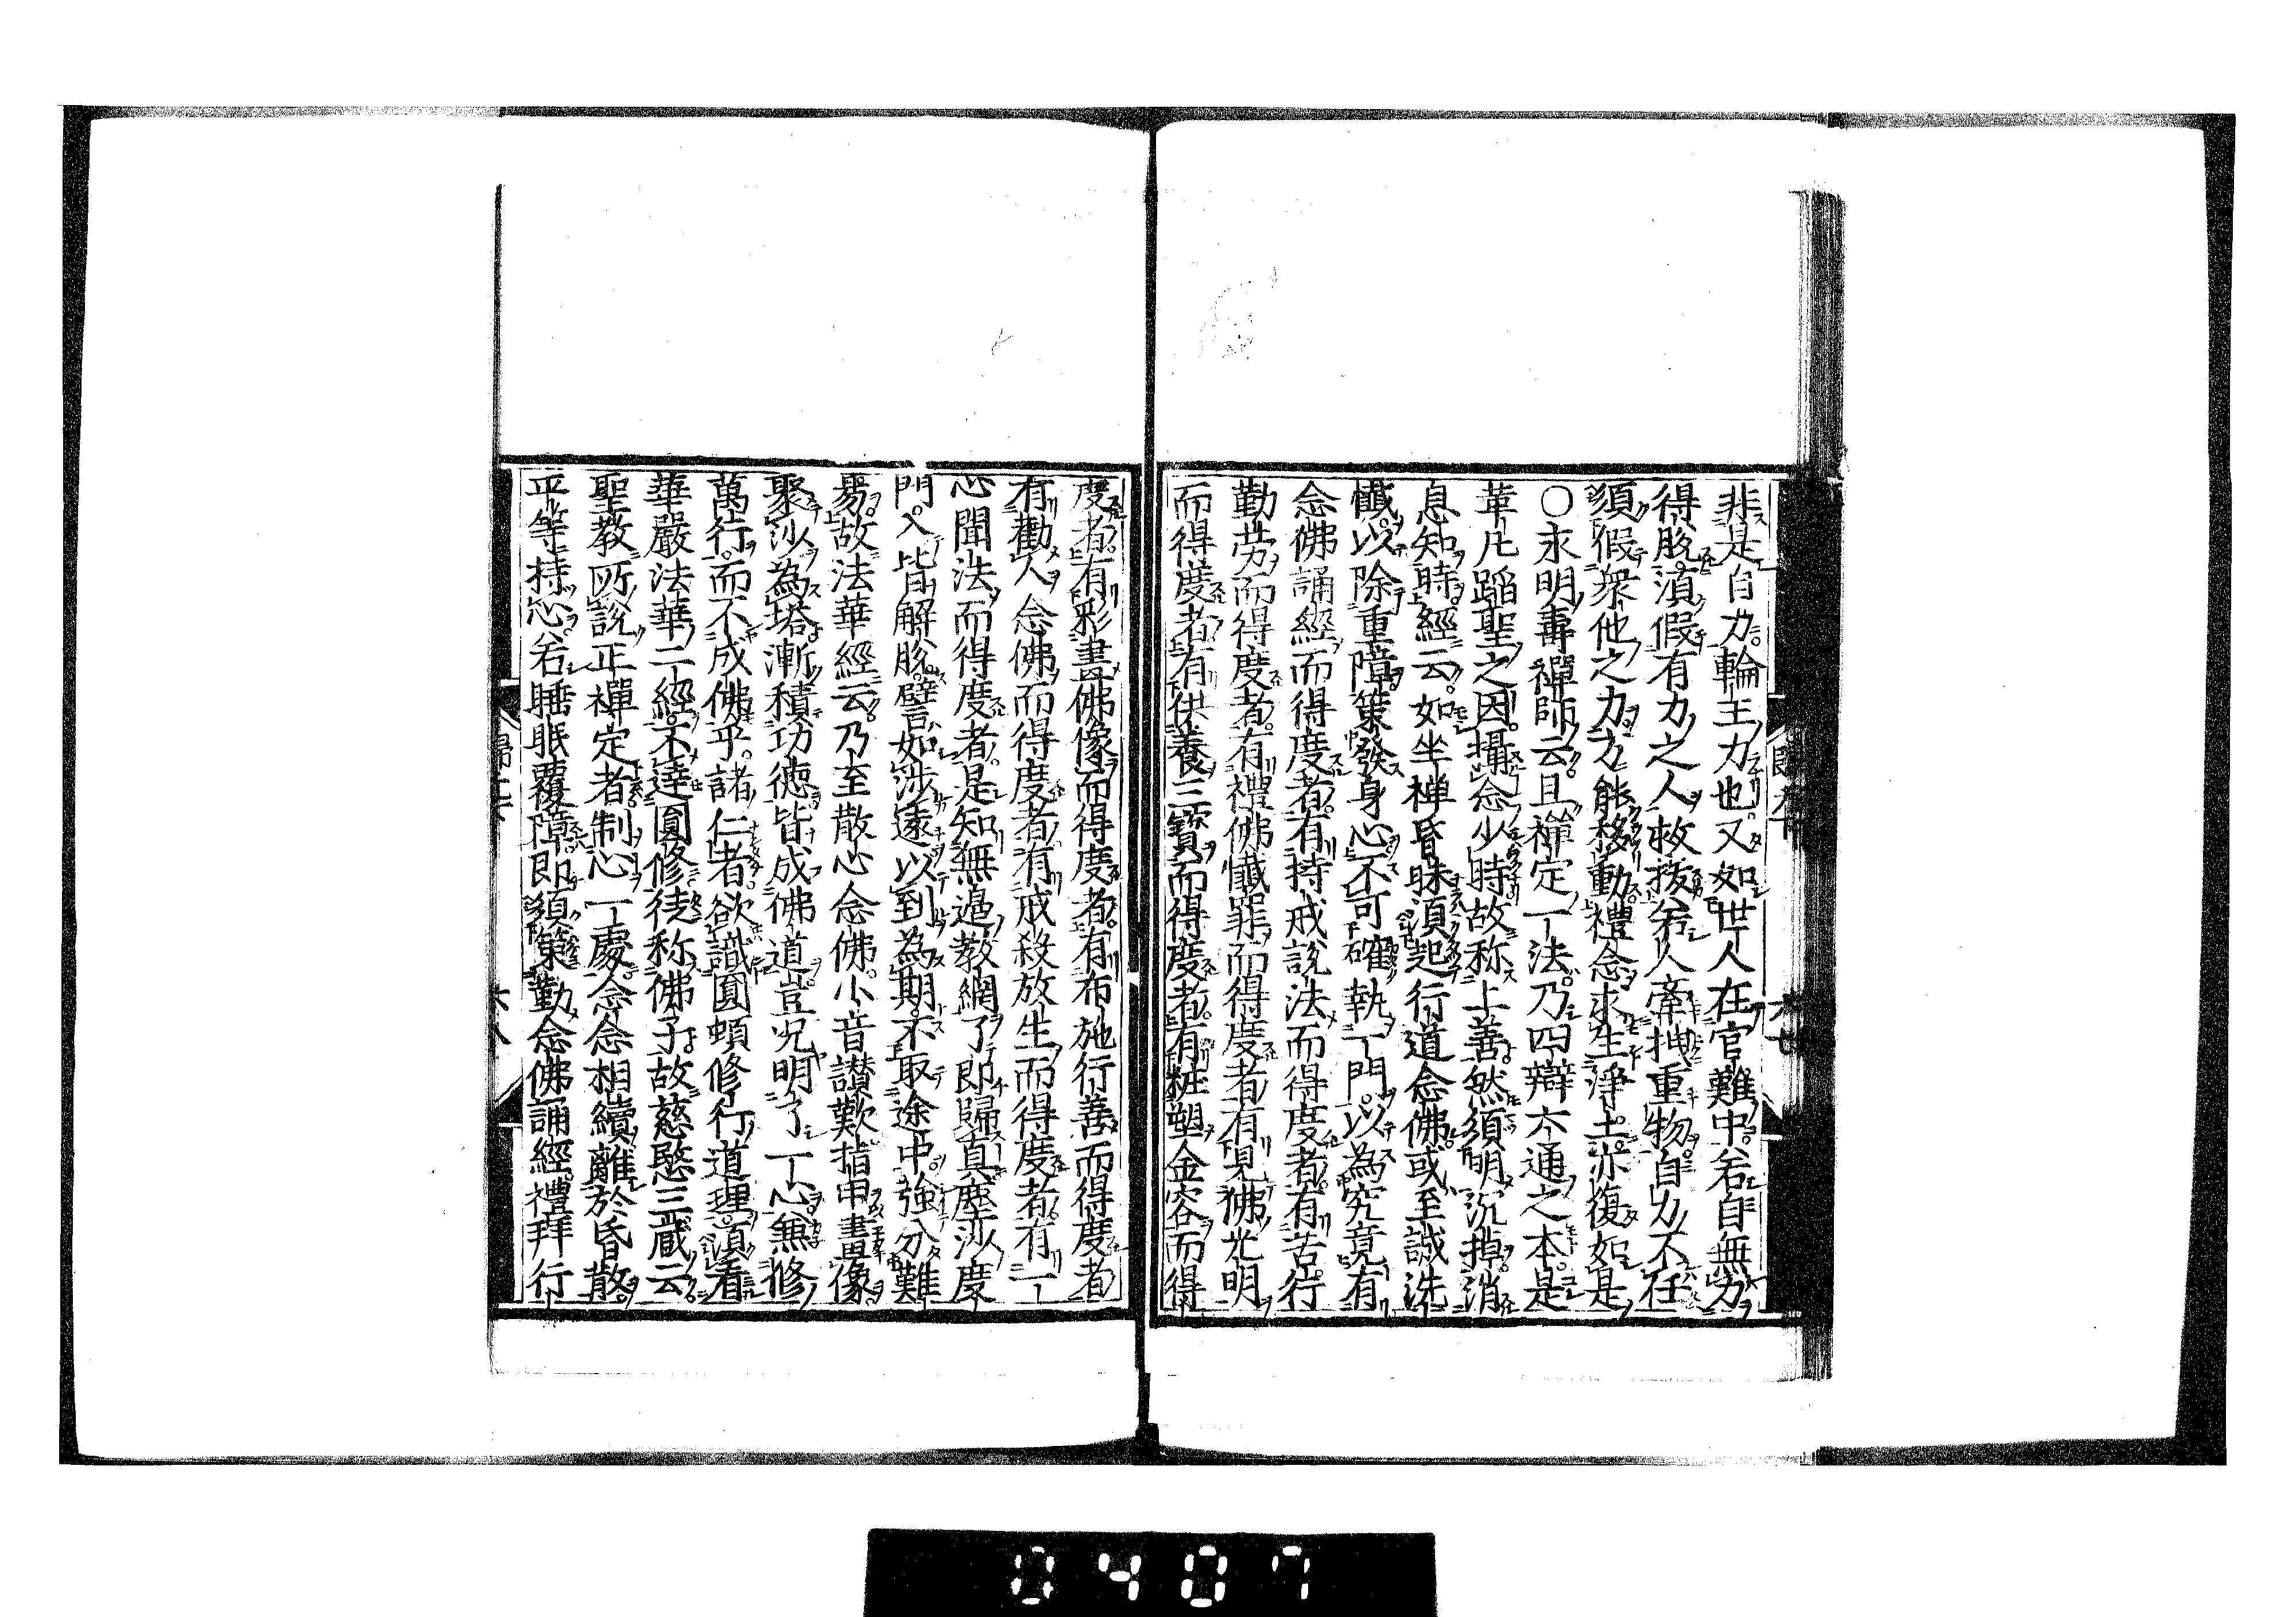 非是自力輪王力也又如世人在官難中若自無力
得脫須假有力之人救拔若人牽拽重物自力不任
須假衆他之力方能移動禮念求生淨土亦復如是
○永明壽禪師云且禪定一法乃四辯六通之本是
革凡蹈聖之因攝念少時故称上善然須明沉掉消
息知時經云如坐禅昏昧須起行道念佛或至誠洗
懺以除重障策發身心不可確執一門以為究竟有
念佛誦經而得度者有持戒說法而得度者有苦行
勤勞而得度者有禮佛懺罪而得度者有見佛光明
而得度者有供養三寶而得度者有粧塑金容而得
度者有彩畫佛像而得度者有布施行善而得度者
有勸人念佛而得度者有戒殺放生而得度者有一
心聞法而得度者是知無邊教網了即歸真塵沙度
門入皆解脫譬如涉遠以到為期不取途中強分難
易故法華經云乃至散心念佛小音讃歎指甲畫像
聚沙為塔漸積功德皆成佛道豈况明了一心兼修
萬行而不成佛乎諸仁者欲識圓頓修行道理須看
華嚴法華二經不達圓修徒称佛子故慈愍三藏云
聖教所說正禪定者制心一處念念相續離於昏散
平等持心若睡眠覆障即須策勤念佛誦經禮拜行
0407